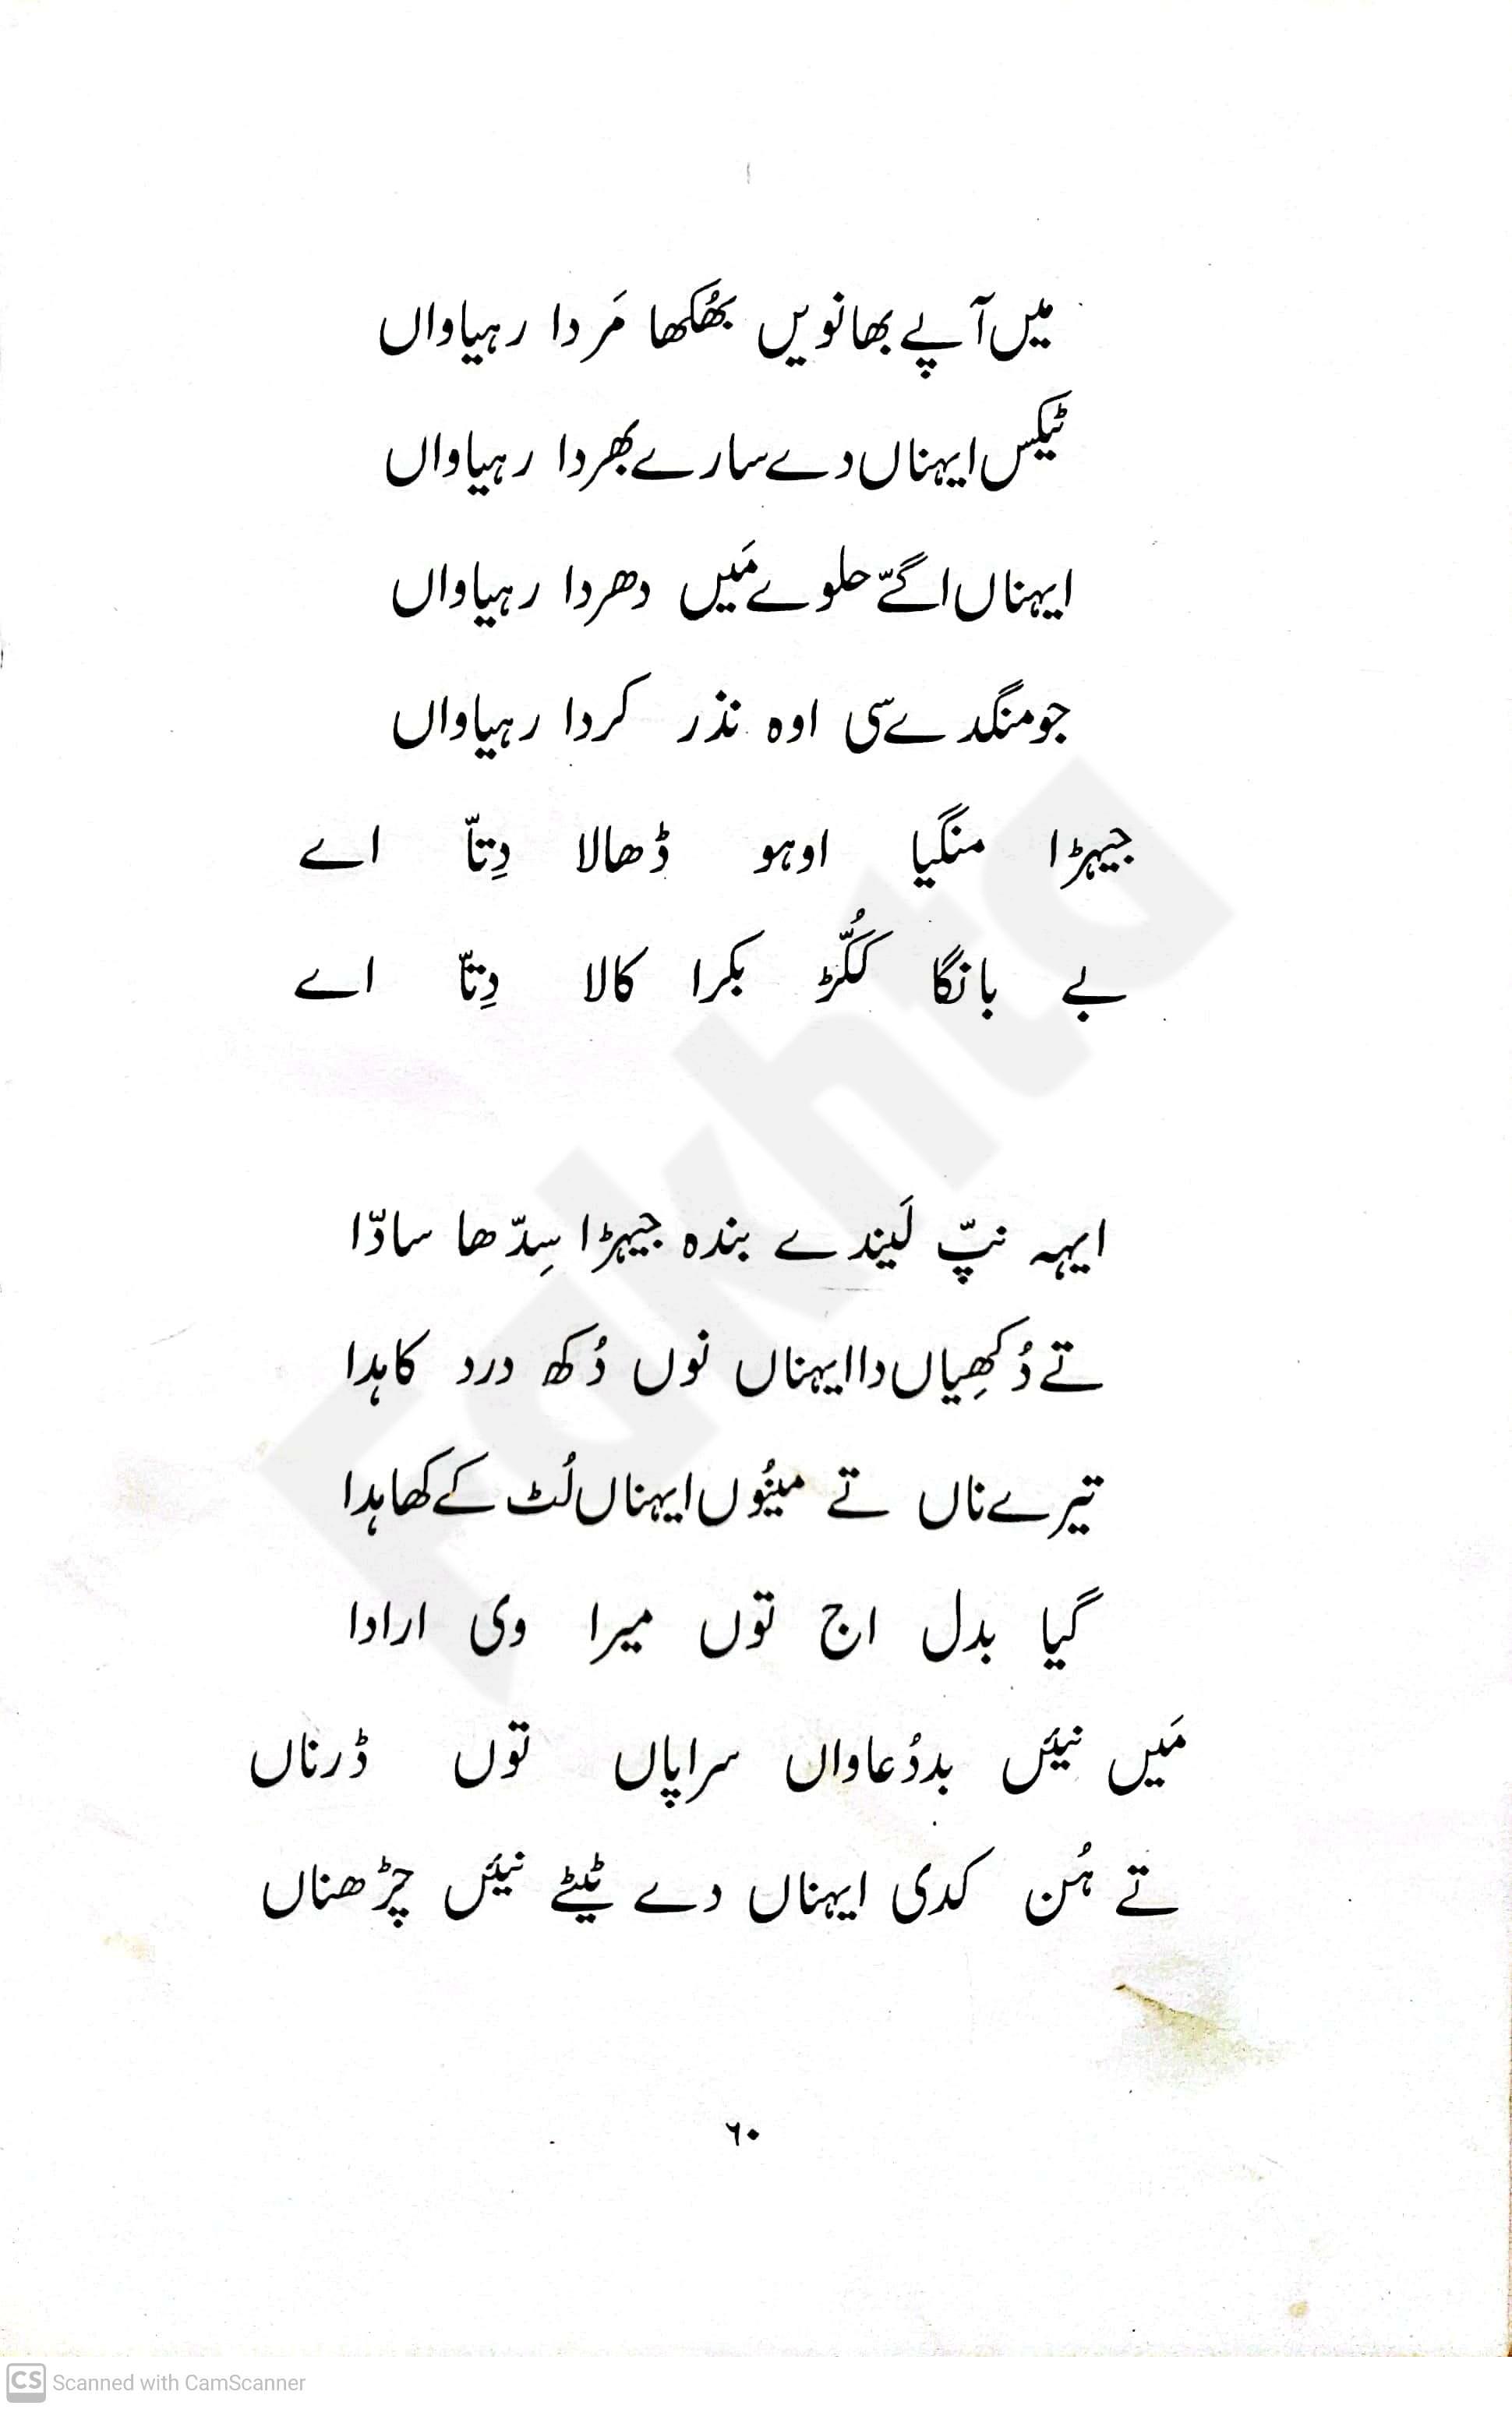 میں آپے بھانویں بھُکھا مَردا رہیاواں
ٹیکس ایہناں دے سارے بھردا رہیاواں
ایہناں اگےّ حلوے مَیں دھردا رہیاواں
جو منگدے سی اوہ نذر کردا رہیاواں
جیہڑا منگیا اوہو ڈھالا دِتاّ اے
بے بانگا ککُّڑ بکرا کالا دِتاّ اے
ایہہ نپّ لَیندے بندہ جیہڑا سِدّھا سادّا
تے دُکھِیاں دا ایہناں نوں دُکھ درد کاہدا
تیرے ناں تے مینُوں ایہناں لُٹ کے کھاہدا
گیا بدل اج توں میرا وی ارادا
مَیں نیئں بددُعاواں سراپاں توں ڈرناں
تے ہُن کدی ایہناں دے ٹیٹے نیئں چڑھناں
٦٠
Fakhta
CS Scanned with CamScanner